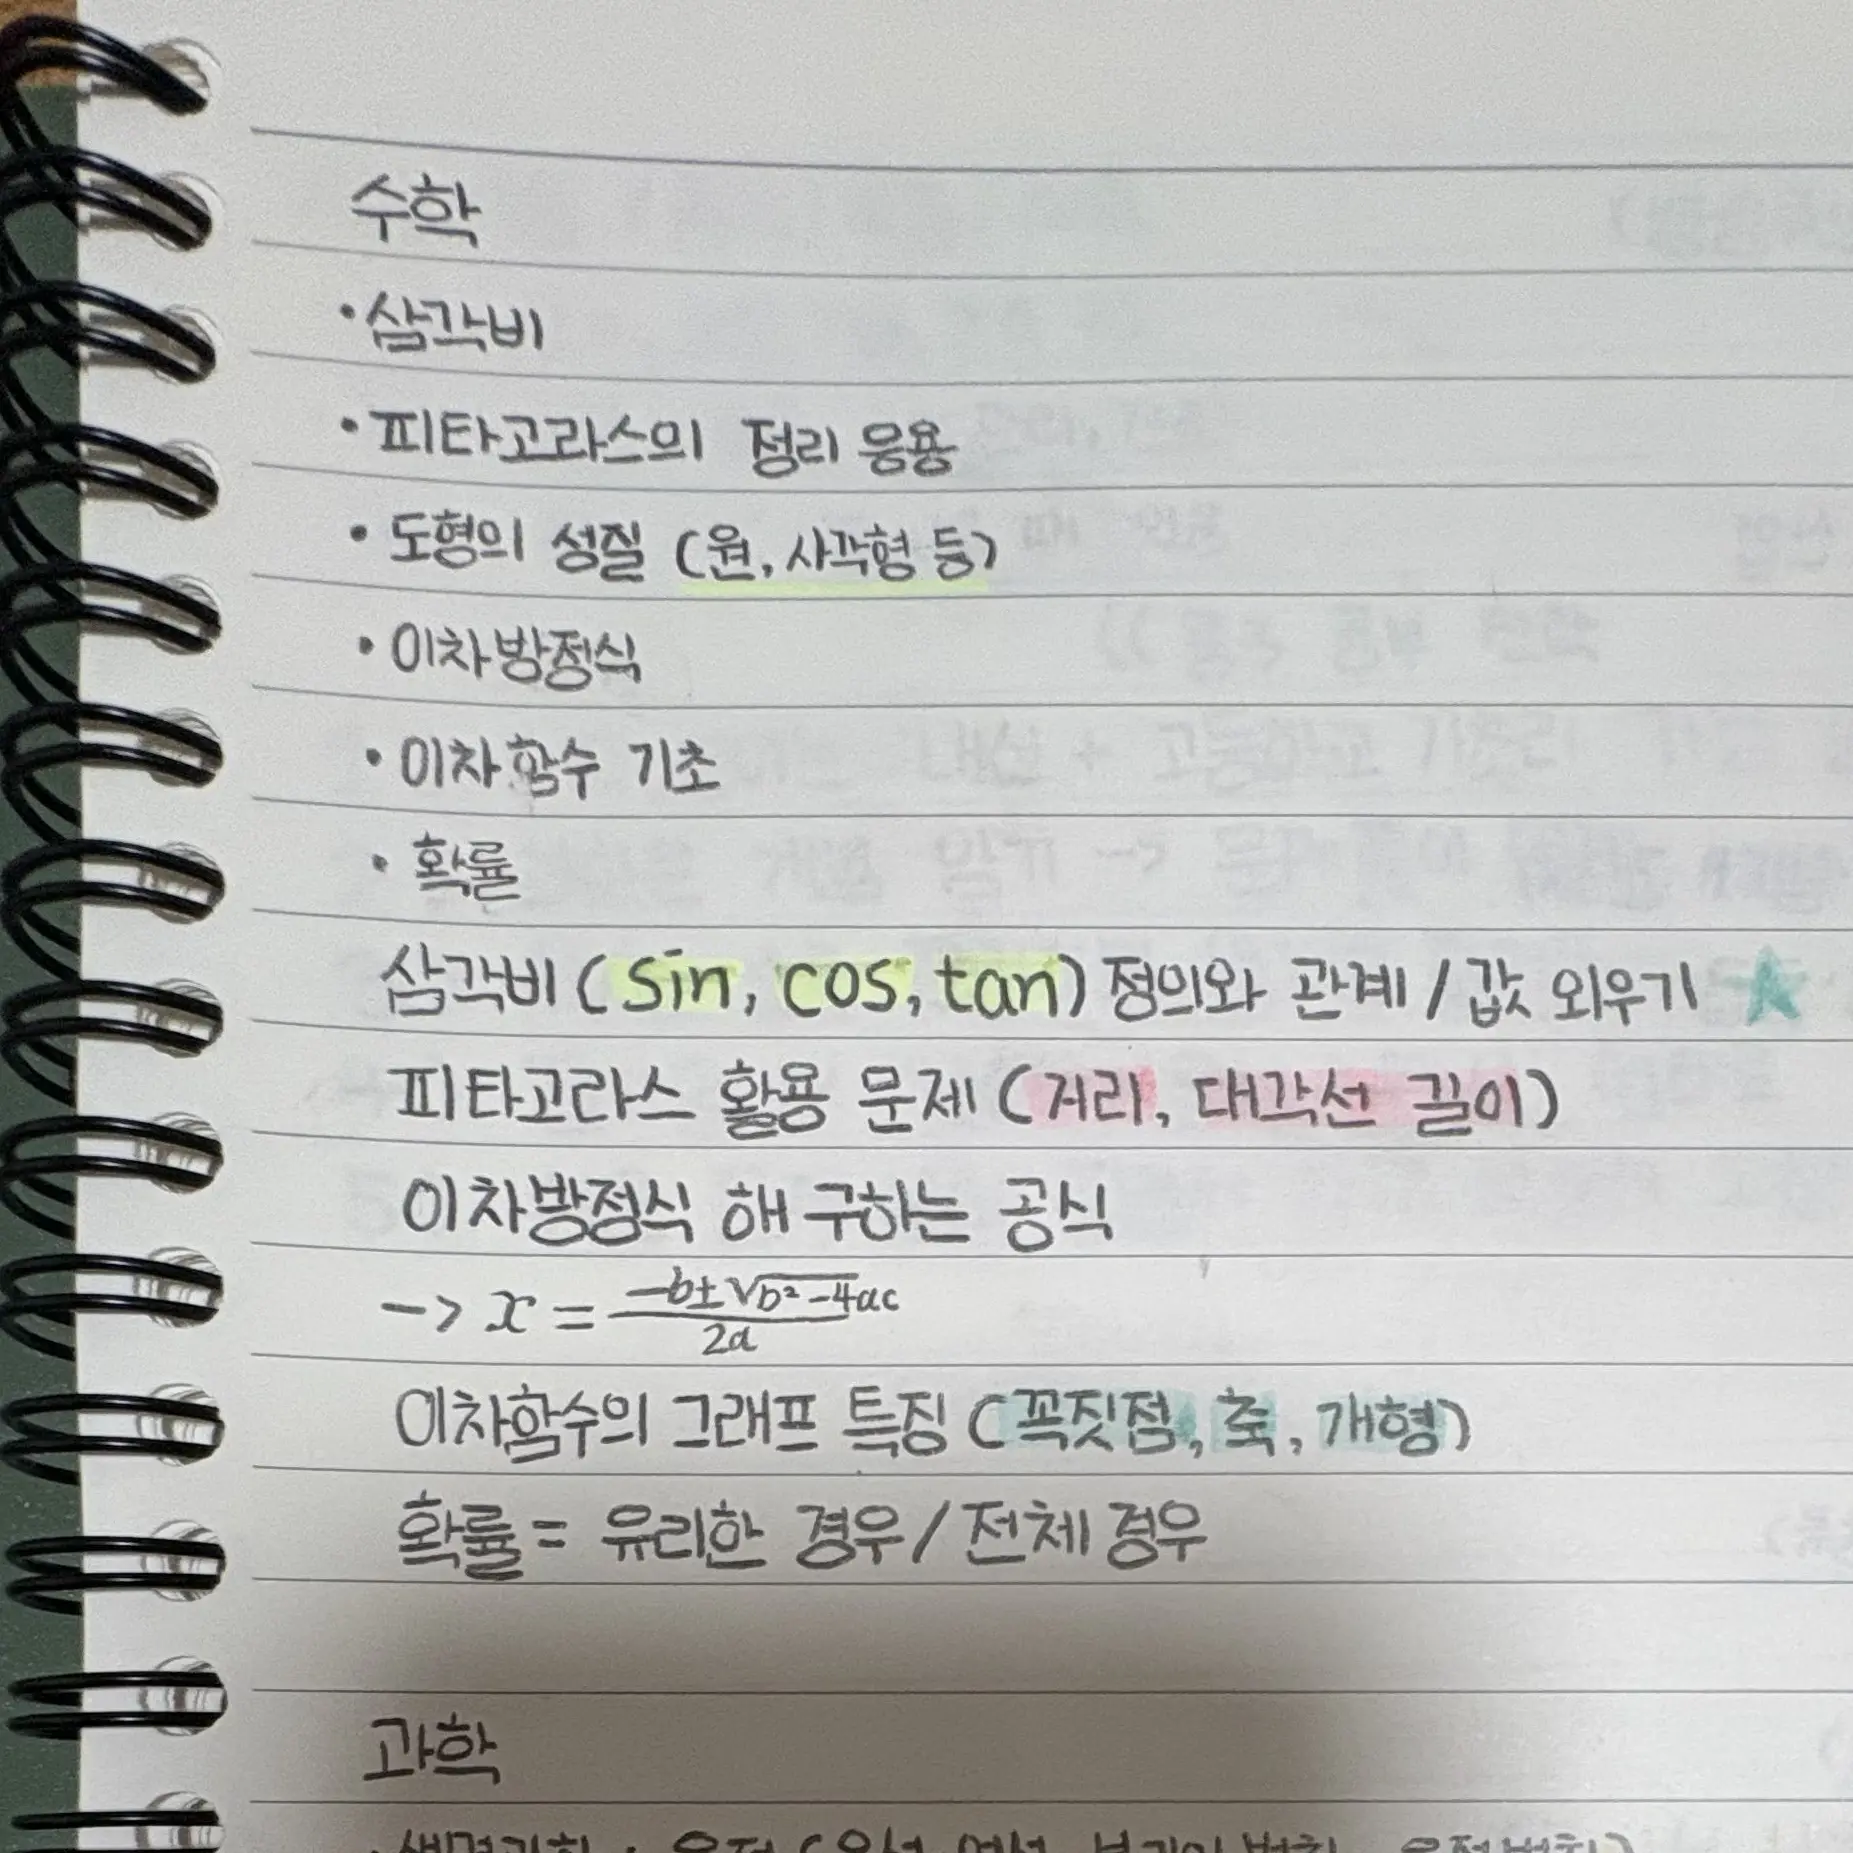 수학
• 삼각비
• 피타고라스의 정리 응용
• 도형의 성질 (원, 사각형 등)
• 이차방정식
• 이차함수 기초
• 확률
삼각비 (sin, cos, tan) 정의와 관계 / 값 외우기 ★
피타고라스 활용 문제 (거리, 대각선 길이)
이차방정식 해 구하는 공식
-> x = (-b±√b²-4ac) / 2a
이차함수의 그래프 특징 (꼭짓점, 축, 개형)
확률 = 유리한 경우 / 전체 경우
과학